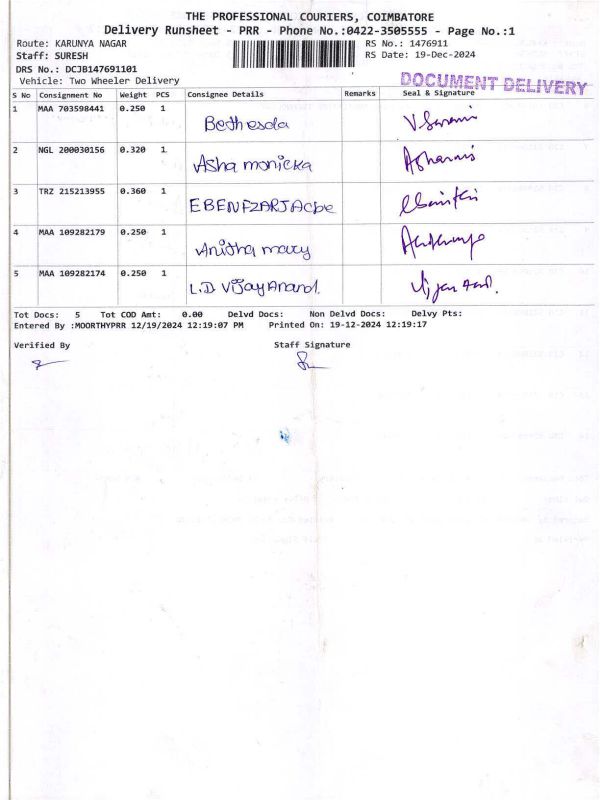 THE PROFESSIONAL COURIERS, COIMBATORE
Delivery Runsheet - PRR - Phone No.:0422-3505555 - Page No.:1
Route: KARUNYA NAGAR RS No.: 1476911
Staff: SURESH RS Date: 19-Dec-2024
DRS No.: DCJB147691101
Vehicle: Two Wheeler Delivery
DOCUMENT DELIVERY
S No Consignment No Weight PCS Consignee Details Remarks Seal & Signature
1 MAA 703598441 0.250 1
Bethesda
2 NGL 200030156 0.320 1
Asha monicka
3 TRZ 215213955 0.360 1
4 MAA 109282179 0.250 1
Anitha mary
5 MAA 109282174 0.250 1
L.D Vijay Anand.
Tot Docs: 5 Tot COD Amt: 0.00 Delvd Docs: Non Delvd Docs: Delvy Pts:
Entered By :MOORTHYPRR 12/19/2024 12:19:07 PM Printed On: 19-12-2024 12:19:17
Verified By Staff Signature